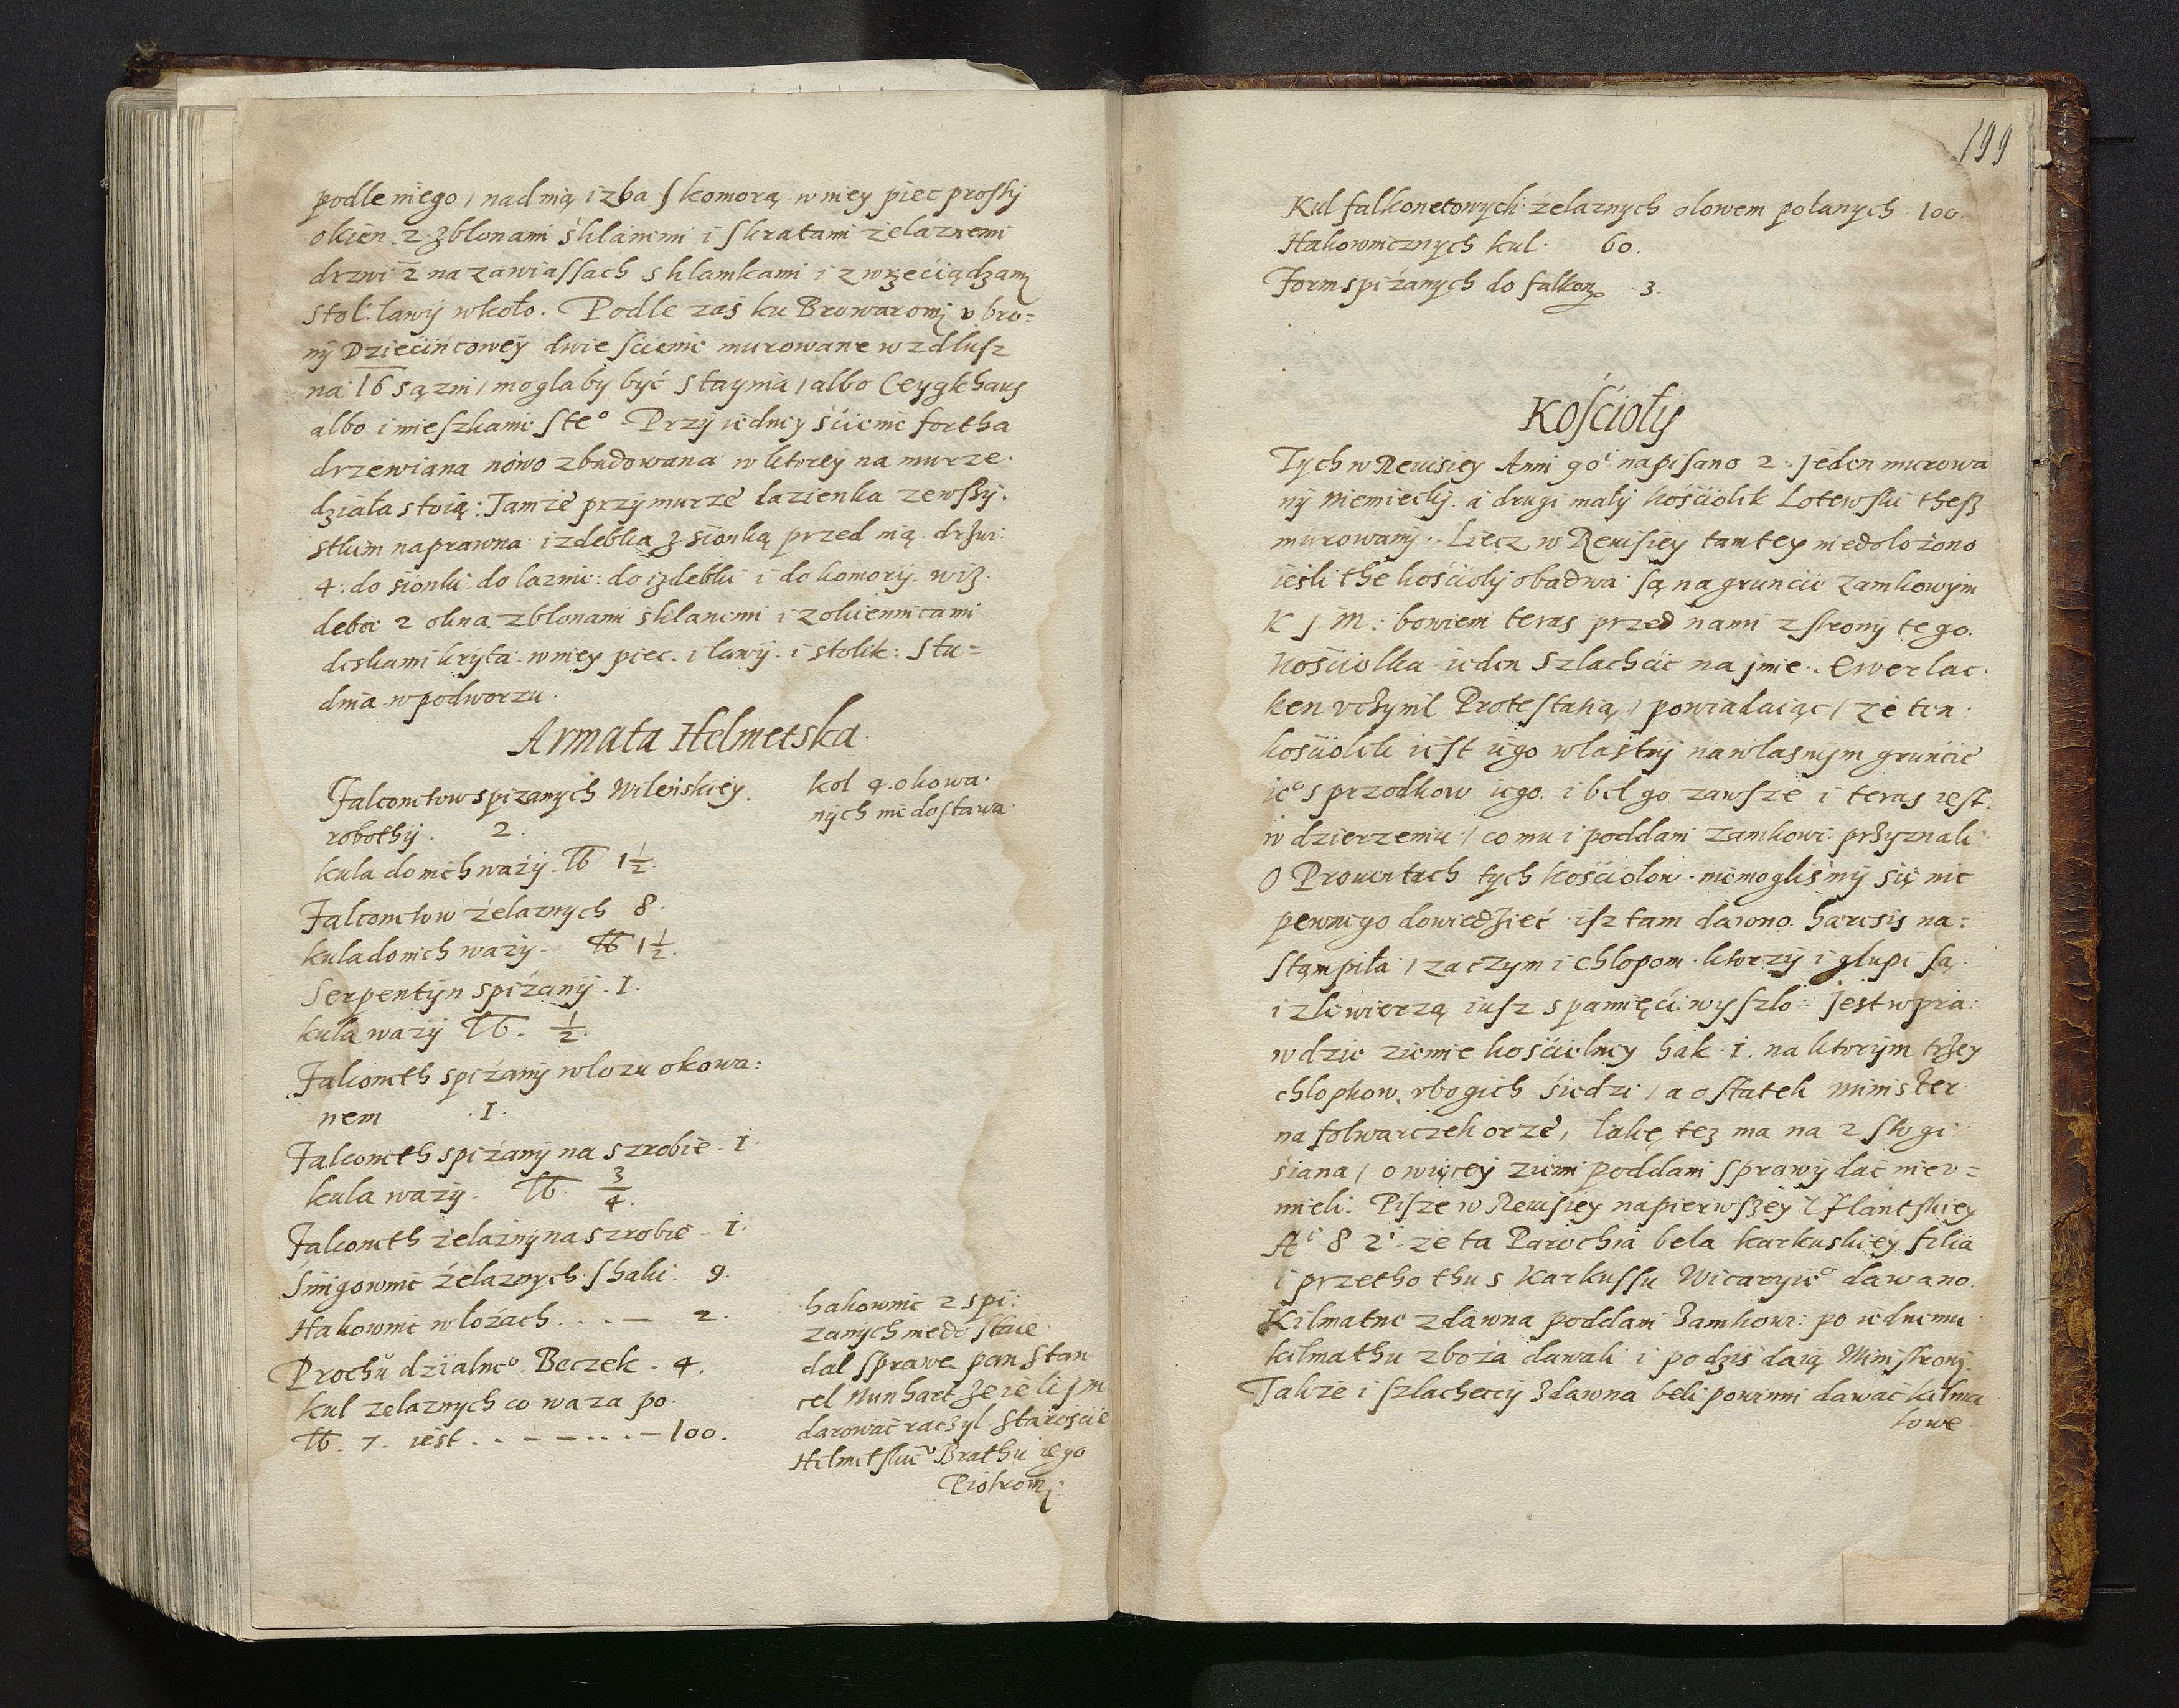 podle niego / nad nią izba s komorą w niey piec prosty
okien 2 z blonami śklanemi i s kratami żelaznemi
drzwi 2 na zawiassach s klamkami i z wrzeciądzamj
stol: lawy wkoło. Podle zaś ku Browarowi v bro=
ny Dziecińcowey dwie ścienie murowane wzdlusz
na 16 sązni / moglaby być staynia / albo Ceygkhaus
albo i mieszkanie ste° Przy iedney ścienie fortha
drzewiana nowo zbudowana w ktorey na murze
działa stoią: Tamże przy murze łazienka ze wszy.
stkim naprawna izdebka z sionką przed nią drzwi
4: do sionki do laznie: do izdebki i do komory. w iz.
debce 2 okna z blonami śklanemi i z okiennicami
deskami kryta w niey piec. i ławy. i stolik: Stu=
dnia w podworzu.
Armata Helmetska
Falconetow spiżanych Wileńskiey
robothy. 2.
kol 4. okowa.
nych nie dostawa
kula do nich waży. ℔ 1½.
Falconetow żelaznych 8.
kula do nich waży. ℔ 1½.
Serpentyn spiżany. 1.
kula waży ℔. ½.
Falconeth spiżany w lozu okowa:
nem .1.
Falconeth spiżany na szrobie. 1.
kula waży. ℔ ¾.
Falconeth żelazny na szrobie. 1.
Śmigownic żelaznych s haki. 9.
Hakownic w łożach . . . — 2.
hakownic 2 spi:
zanych niedostaie
dal sprawe pan Stan
cel Nunhart że ie li j m
darować raczyl Staroscie
Helmetskie° Brathu iego
Piotrowj.
Prochu dzialne° Beczek. 4.
kul zelaznych co waza po.
℔. 7. iest . . — — .. — 100.
199
Kul falkonetowych żelaznych olowem polanych. 100.
Hakownicznych kul. 60.
Form spiżanych do falkon. 3.
Kościoły
Tych w Reuisiey Anni 90i napisano 2. Jeden murowa
ny Niemiecky. a drugi mały kościolek Lotewski thesz
murowany. Liecz w Reuisiey tamtey niedolożono
ieśli the kościoly obadwa są na gruncie zamkowym
K J M: bowiem teras przed nami z strony tego
kościolka ieden Szlachcic na jmie. Ewerlac.
ken vczynil Protestatią / powiadaiąc / że ten
kościolek iest iego własny na wlasnym gruncie
ie° s przodkow iego. i bel go zawsze i teras iest.
w dzierzeniu / co mu i poddani zamkowi przyznali
O Prouentach tych kościołow. niemogliśmy się nic
pewnego dowiedzieć isz tam dawno haeresis na=
stąmpiła / zaczym i chlopom. ktorzy i glupi są
i zle wierzą iusz s pamięci wyszlo: Jest w pra:
wdzie ziemie kościelney hak 1. na ktorym trzey
chlopkow vbogich siedzi / a ostatek Minister
na folwarczek orze, lakę tez ma na 2 stogi
siana / o więcey ziemi poddani sprawy dać nie v=
mieli. Pisze w Reuisiey napierwszey Iflantskiey
Ai 82. że ta Parochia bela karkuskiey filia
i przetho thu s Karkussu Wicaryie° dawano
Kilmatne z dawna poddani zamkowi po iednemu
kilmathu zboża dawali i po dziś daią Ministrowj.
Także i szlachecy z dawna beli powinni dawać kilma
towe